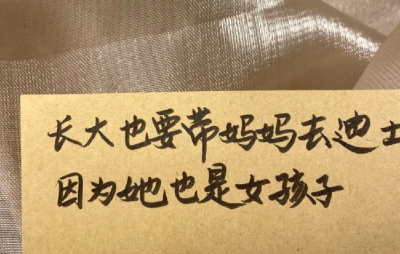 长大也要带妈妈去迪士
因为她也是女孩子